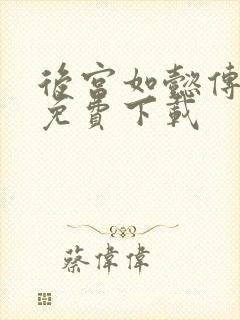 後宮如懿傳
免費下載
蔡偉偉